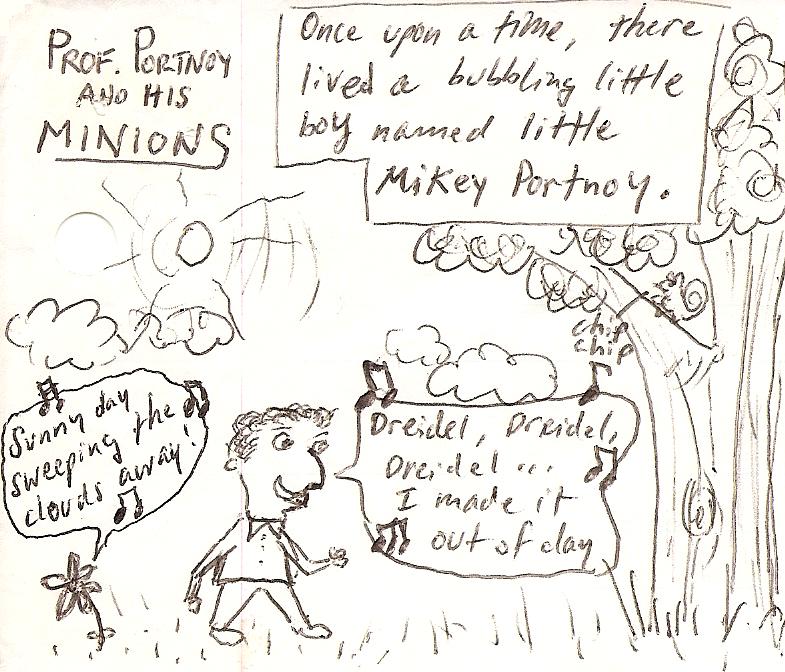 PROF. PORTNOY
AND HIS
MINIONS
Once upon a time, there
lived a bubbling little
boy named little
Mikey Portnoy.
chip
chip
Sunny day
sweeping the
clouds away!
Dreidel, Dreidel,
Dreidel...
I made it
out of clay